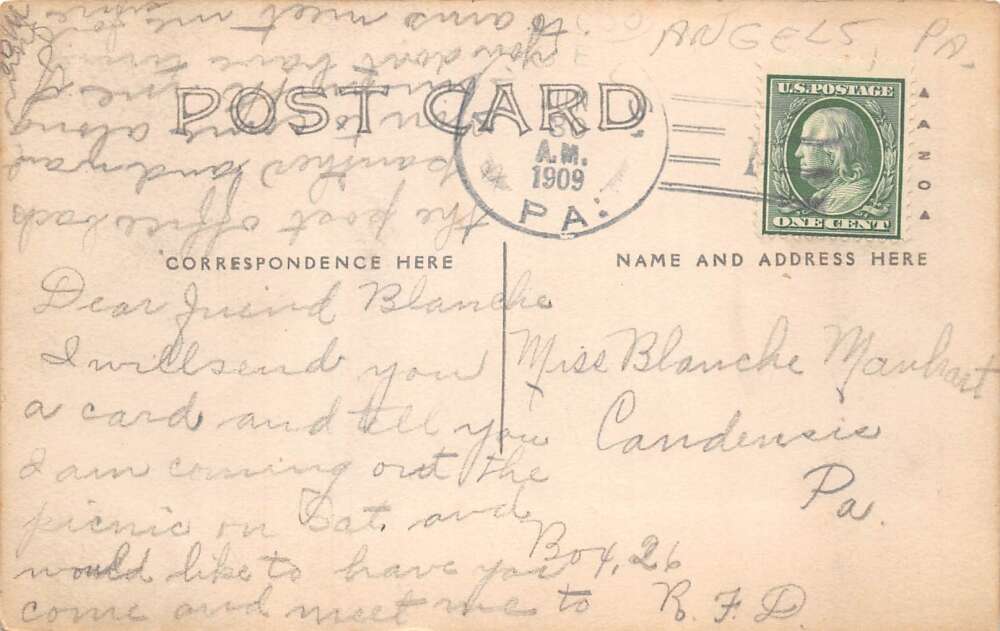 ANGELS PA.
POST CARD
A.M.
1909
PA.
U.S. POSTAGE
ONE CENT
CORRESPONDENCE HERE
NAME AND ADDRESS HERE
Dear Friend Blanche
I will send you
a card and tell you
I am coming out the
picnic on Sat. and
would like to have you
come and meet me to
the post office back
panther and
you come along
me if
you don't have time
to come meet me
Miss Blanche Manhart
Candensis
Pa.
Box, 26
R. F. D.
AZO